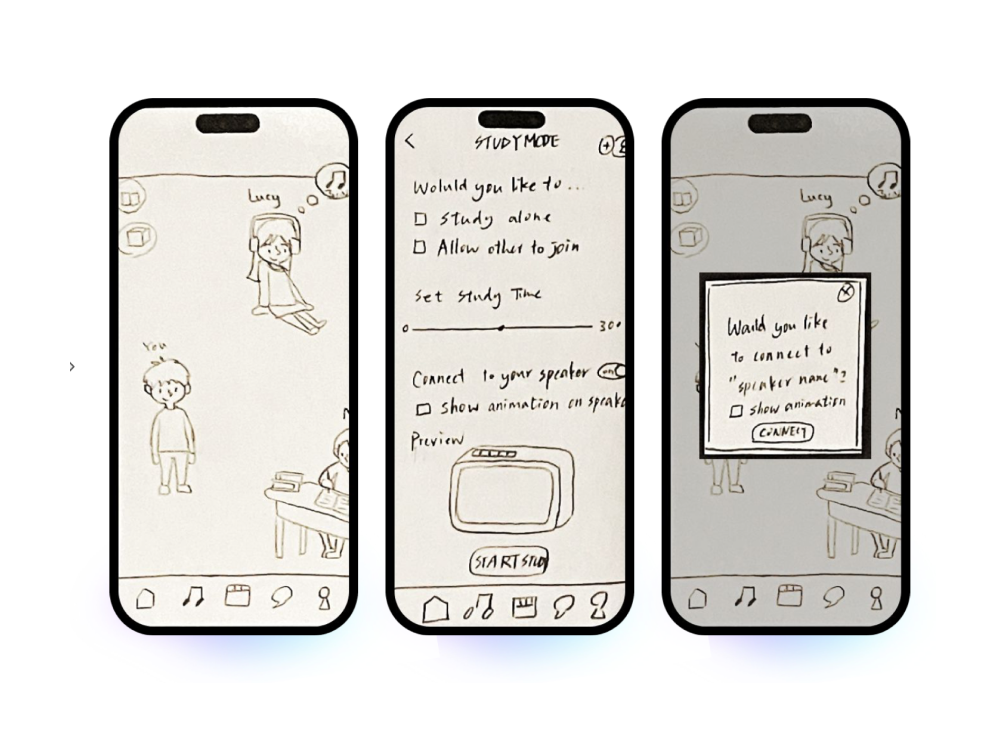 Lucy
You
STUDY MODE
Woluld you like to ...
study alone
Allow other to join
Set Study Time
0
30
Connect to your speaker on
show animation on speake
Preview
START STUDY
Lucy
Would you like
to connect to
"speaker name"?
show animation
CONNECT